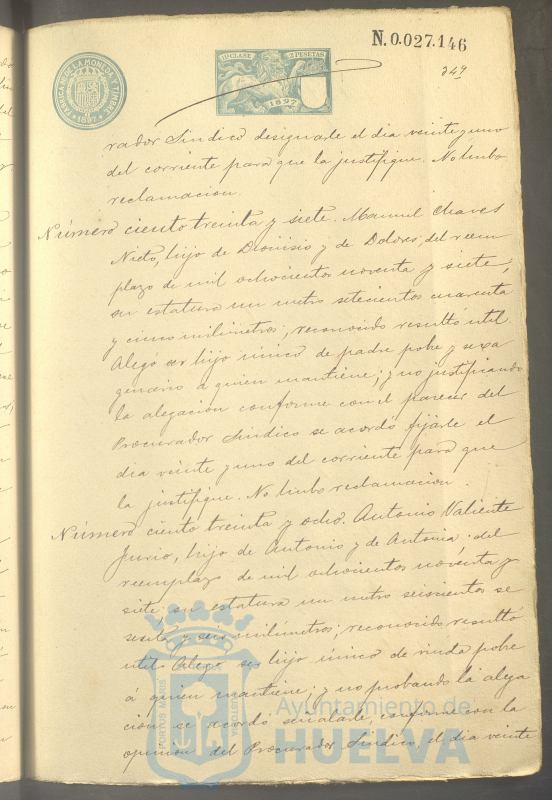 N.0.027.146
FABRICA N. DE LA MONEDA Y TIMBRE
1897
11ª CLASE
2 PESETAS
1897
349
rador Síndico designarle el dia veinte y uno
del corriente para que la justifique. No hubo
reclamacion.
Número ciento treinta y siete. Manuel Chaves
Nieto, hijo de Dionisio y de Dolores, del reem
plazo de mil ochocientos noventa y siete;
su estatura un metro setecientos cuarenta
y cinco milimetros; reconocido resultó util
Alegó ser hijo único de padre pobre y sexa
genario á quien mantiene; y no justificando
la alegacion conforme con el parecer del
Procurador Síndico se acordo fijarle el
dia veinte y uno del corriente para que
la justifique. No hubo reclamacion.
Número ciento treinta y ocho. Antonio Valiente
hijo de Antonio y de Antonia, del
reemplazo de mil ochocientos noventa y
siete; su estatura un metro seiscientos se
senta y seis milimetros; reconocido resultó
util. Alegó ser hijo único de viuda pobre
á quien mantiene; y no probando la alega
cion se acordo señalarle, conforme con la
opinion del Procurador Síndico, el dia veinte
PORTUS MARIS
CUSTODIA
Ayuntamiento de
HUELVA